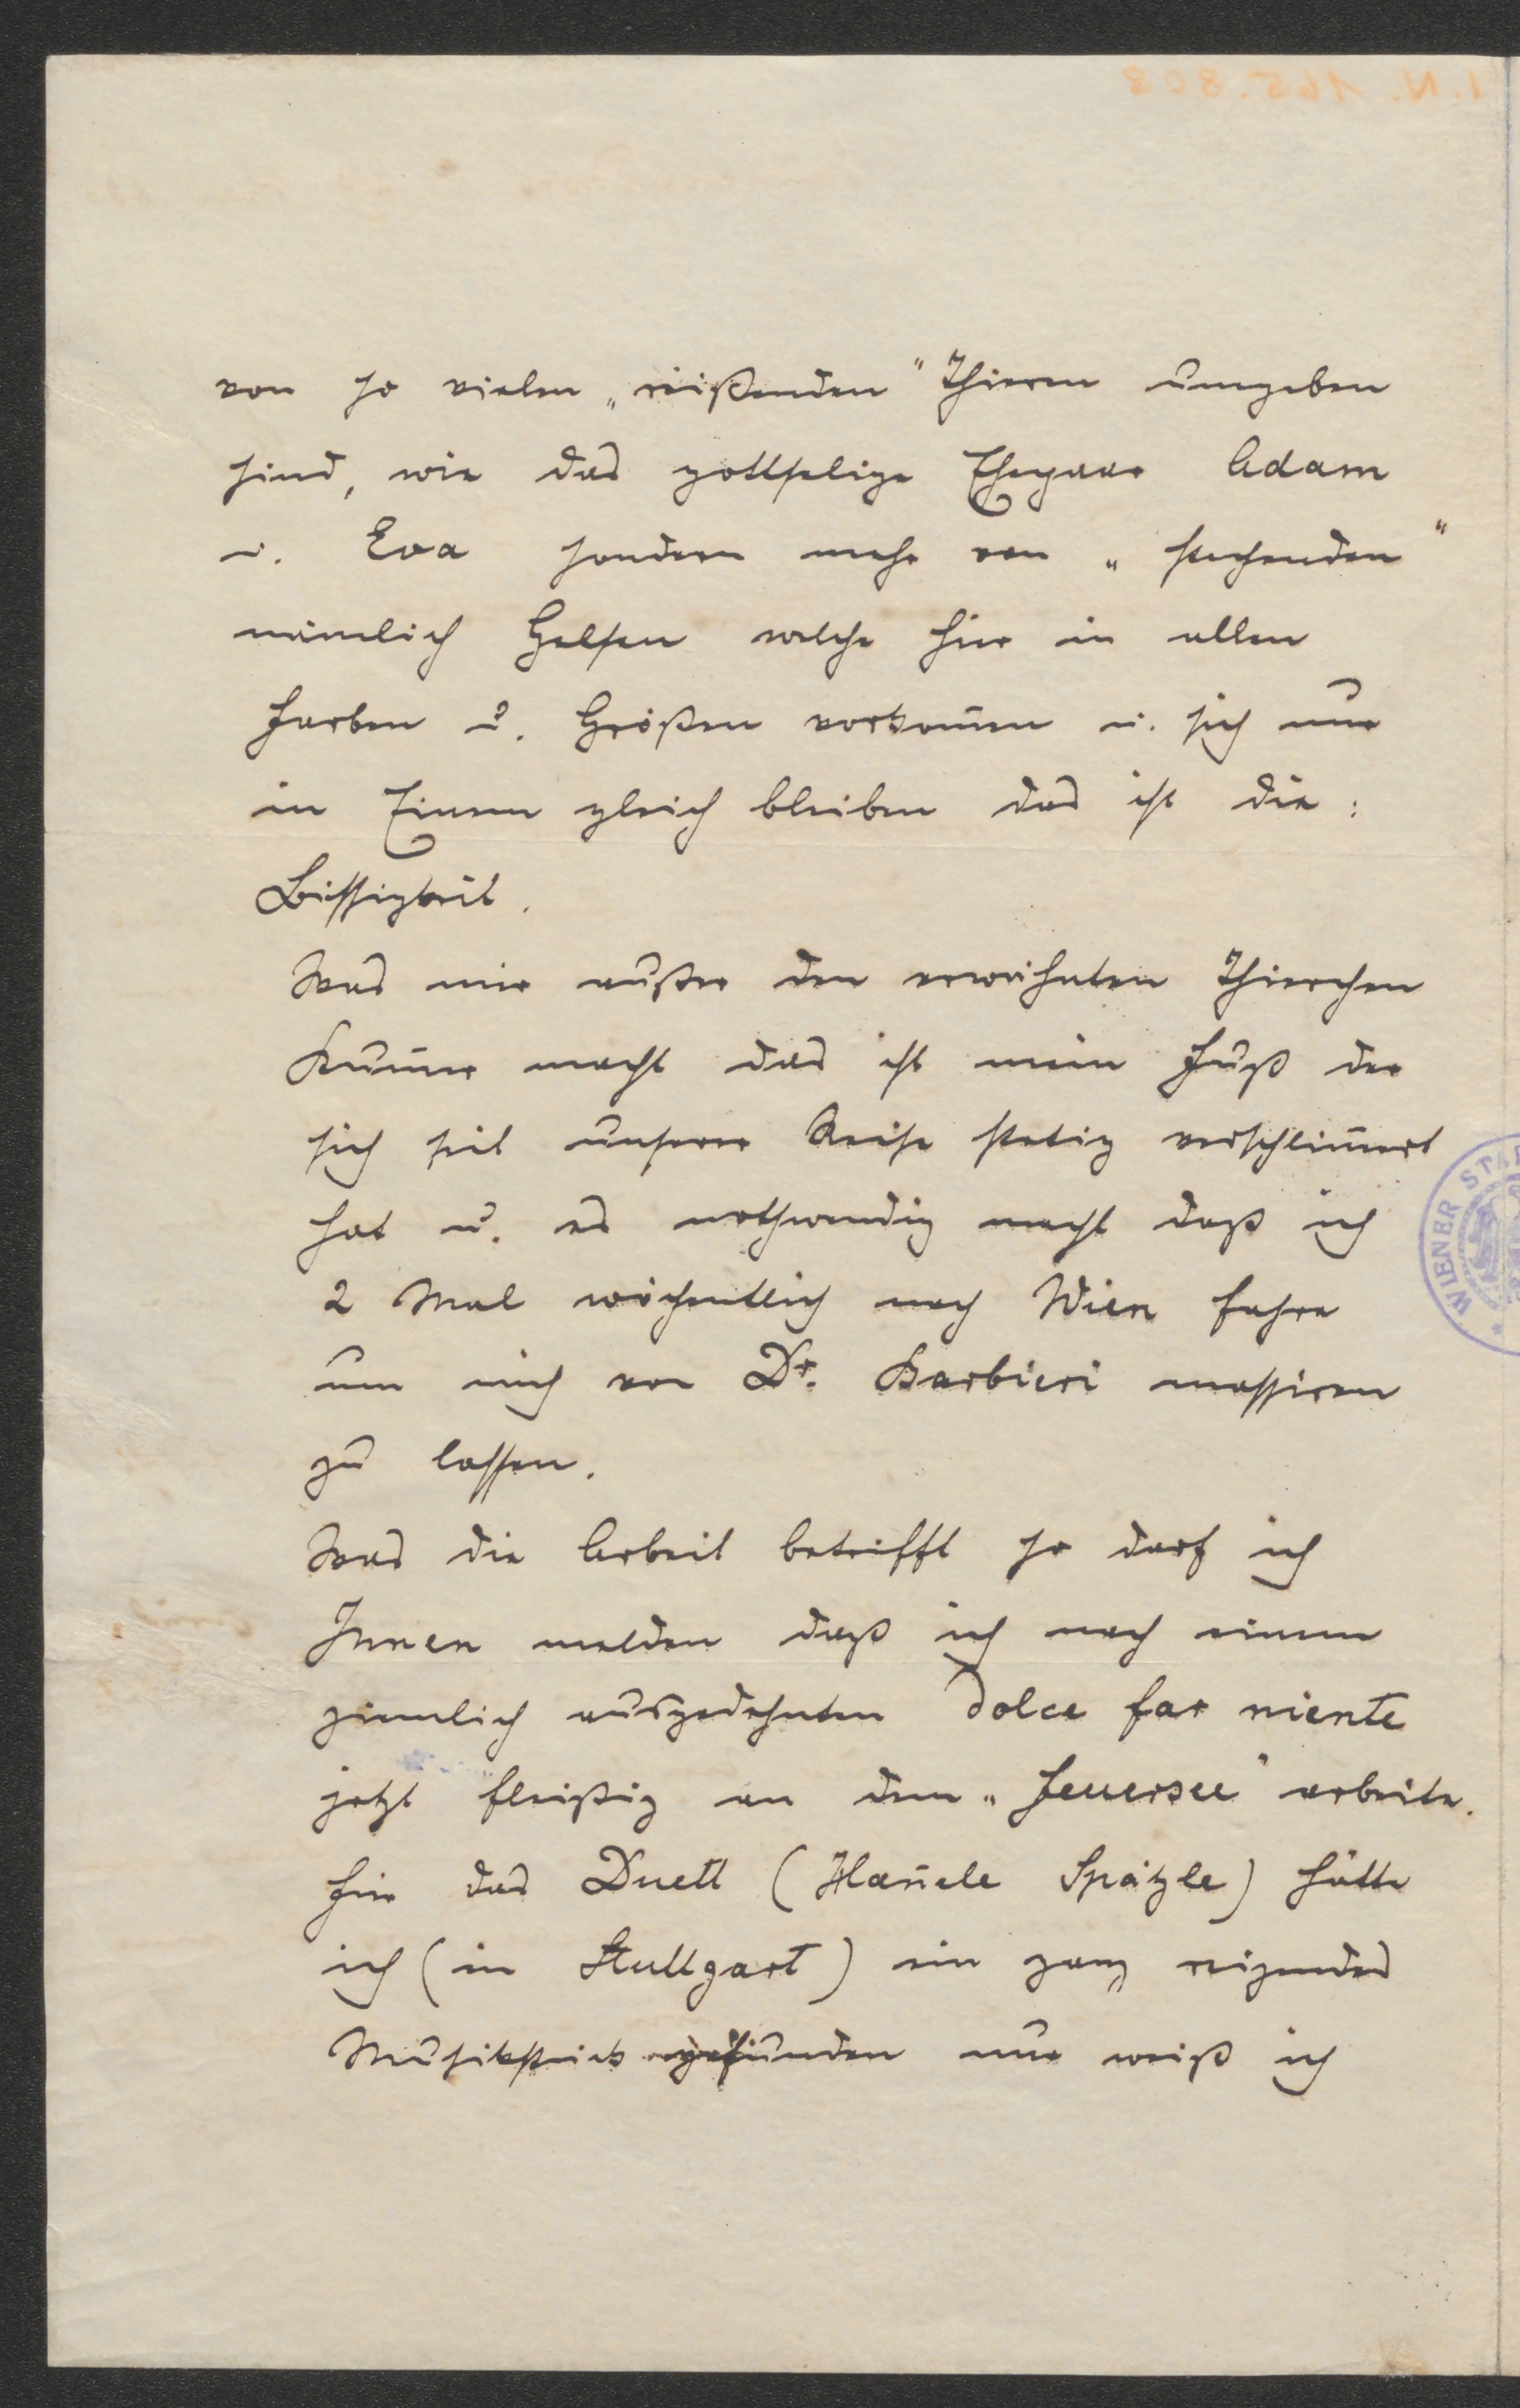 von so vielen „reißenden" Thieren umgeben
sind, wie das gottselige Ehepaar Adam
u. Eva sondern mehr von „stechenden"
nämlich Gelsen welche hier in allen
Farben u. Größen vorkom̄en u. sich nur
in Einem gleich bleiben das ist die:
Bissigkeit.
Was mir außer den erwähnten Thierchen
Kum̄er macht das ist mein Fuß der
sich seit unserer Reise stetig verschlim̄ert
hat u. es nothwendig macht daß ich
2 Mal wöchentlich nach Wien fahre
um mich von Dr. Barbieri massiren
zu lassen.
Was die Arbeit betrifft so darf ich
Ihnen melden daß ich nach einem
ziemlich ausgedehnten Dolce far niente
jetzt fleißig an dem „Feuersee" arbeite.
Für das Duett (Han̄ele Spätzle) hätte
ich (in Stuttgart) ein ganz reizendes
Musikstück gefunden nur weiß ich
I.N. 165.808
WIENER STA